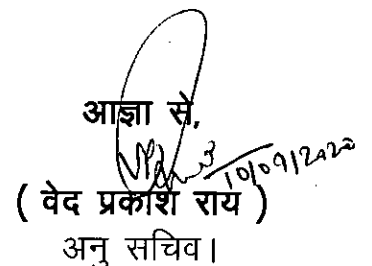 आज्ञा से,
10/09/2020
( वेद प्रकाश राय )
अनु सचिव।